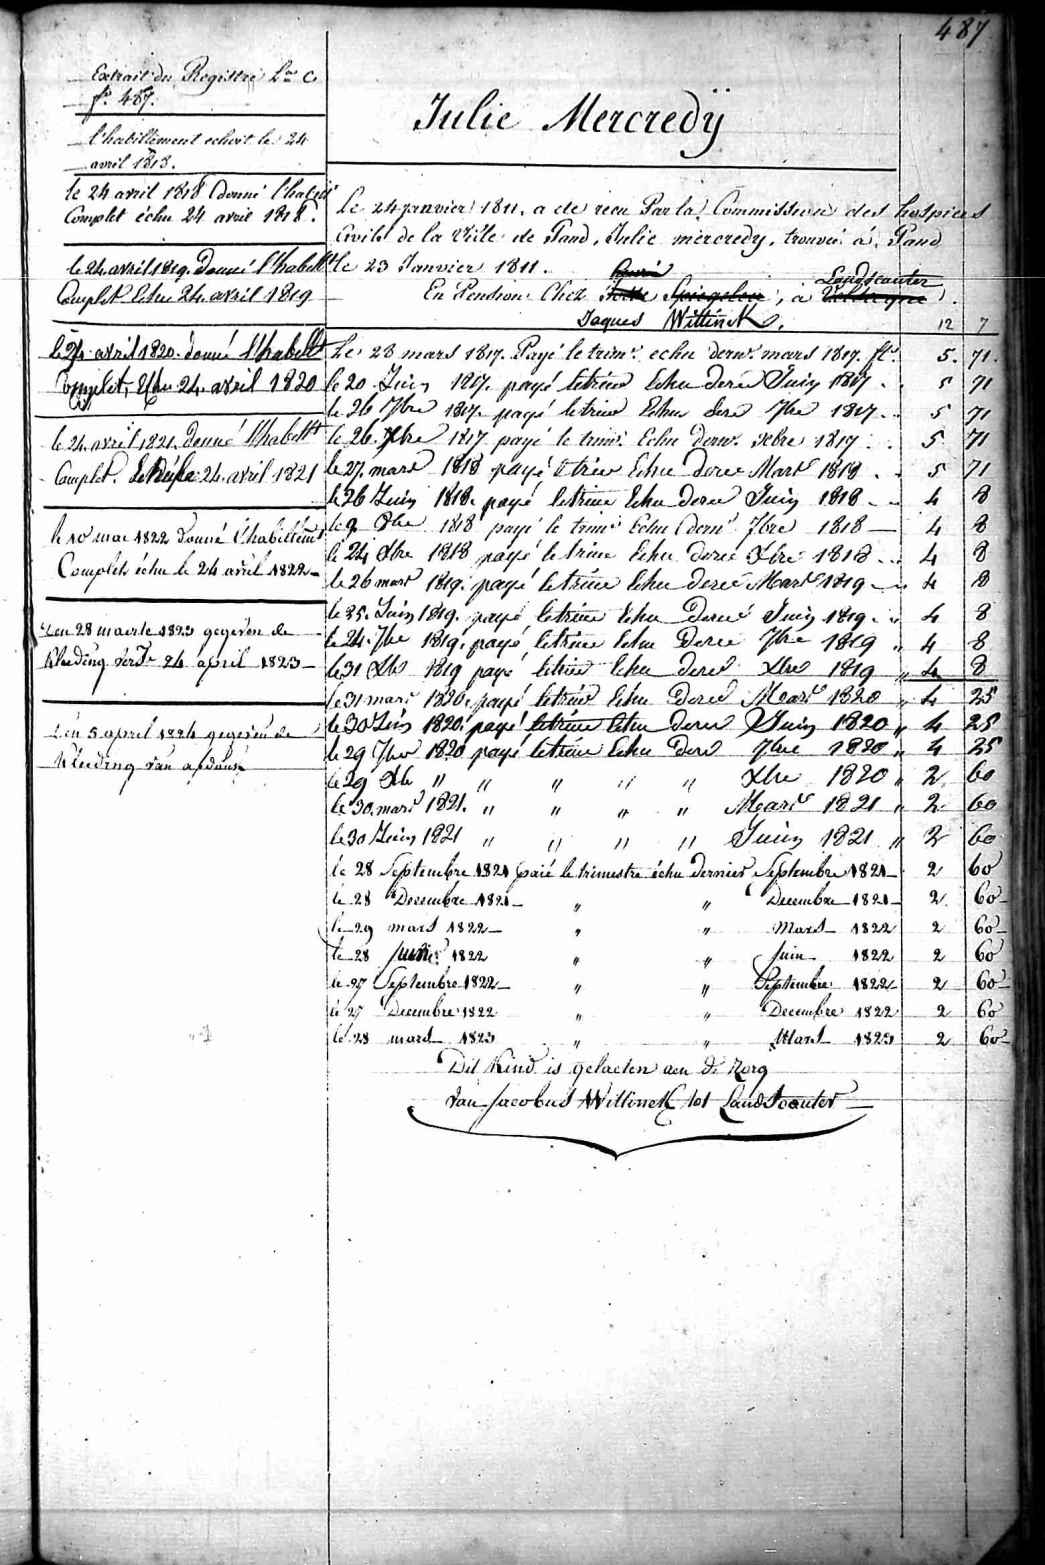 487
Extrait du Registre Lre C
fo. 487.
l'habillement echoit le 24
avril 1813.
le 24 avril 1818 donné l'habill
Complet échu 24 avril 1818.
le 24 avril 1819. Donné l'habillt
Complet Echu 24. avril 1819
le 24. avril 1820. donné l'habillt
Complet, Echu 24. avril 1820
le 24. avril 1821. Donné l'habillt
Complet. Echu le 24. avril 1821
le 10 mai 1822 donné l'habillemt
Complet échu le 24 avril 1822
Den 28 maerte 1823 gegeven de
kleeding verst 24 april 1823
Den 5 april 1824 gegeven de
kleeding van
Julie Mercredÿ
Le 24 janvier 1811. a été recu Par la Commission des hospices
Civils de la Ville de Gand, Julie mercredy, trouvée à Gand
le 23 Janvier 1811.
Landscauter
En Pension Chez Spiegelou, à
Jaques Wittinck.
12 7
Le 28 mars 1817. Payé le trimr. echu dernr. mars 1817. fl. 5. 71.
le 20. Juin 1817. payé le trime Echu derer Juin 1817. 5 71
le 26 7bre 1817. payé le trime Echu dere 7bre 1817. 5 71
le 26. Xbre 1817 payé le trimr. Echu dernr. xbre 1817. 5 71
le 27. mars 1818 payé le trime Echu derer Mars 1818 5 71
le 26 Juin 1818. payé le trime Echu derer Juin 1818 4 8
le 9 8bre 1818 payé le trimr Echu dernr. 7bre 1818 4 8
le 24 Xbre 1818 payé le trime Echu derer Xbre 1818 4 8
le 26 mars 1819. payé le trime Echu derer Mars 1819 4 8
le 25. Juin 1819. payé le trime Echu derer Juin 1819. 4 8
le 24. 7bre 1819. payé le trime Echu Derer 7bre 1819 " 4 8
le 31 Xbre 1819 payé le trime Echu derer Xbre 1819 " 4 8
le 31 mars 1820. payé le trime Echu Derer Mars 1820 " 4 25
le 30 Juin 1820. payé le trime Echu derer Juin 1820 " 4 25
le 29 7bre 1820 payé le trime Echu Derer 7bre 1820 " 4 25
le 29 Xbre " " " " " Xbre 1820 " 2 60
le 30. mars 1821. " " " " Mars 1821 " 2 60
le 30 Juin 1821 " " " " Juin 1821 " 2 60
le 28 Septembre 1821 paié le trimestre échu dernier Septembre 1821 2 60
le 28 Decembre 1821 " " Decembre 1821 2 60
le 29 mars 1822 " " Mars 1822 2 60
le 28 juin 1822 " " juin 1822 2 60
le 27 Septembre 1822 " " Septembre 1822 2 60
le 27 Decembre 1822 " " Decembre 1822 2 60
le 28 mars 1823 " " Mars 1823 2 60
Dit Kind is gelaeten aen de zorg
van Jacobus Wittinck tot Landscauter